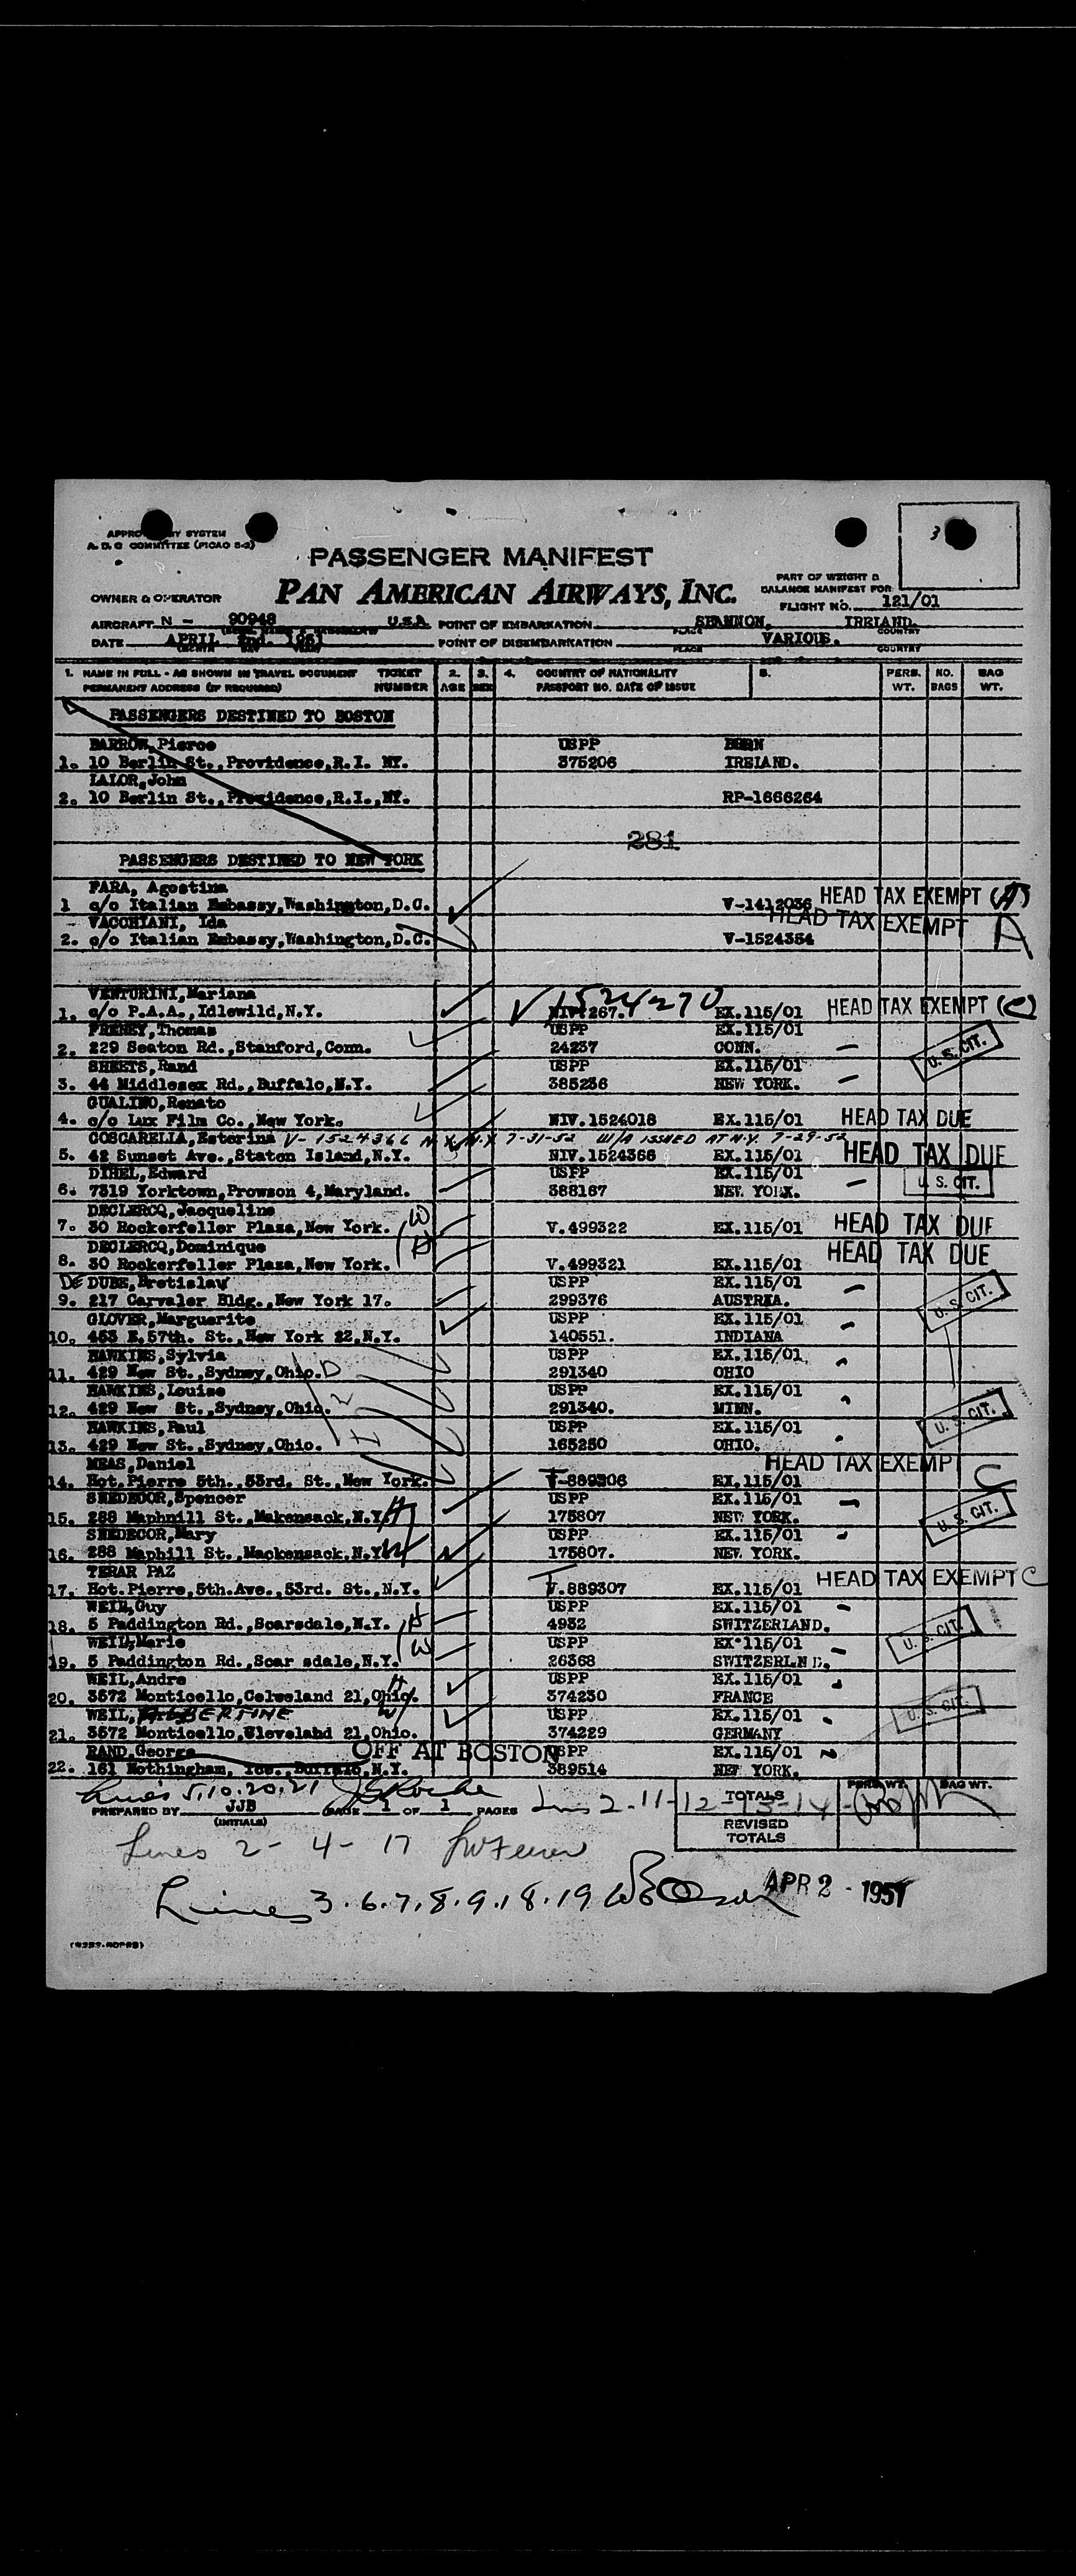 3
APPROVED BY SYSTEM
A. D. C COMMITTEE (PICAO S-2)
PASSENGER MANIFEST
PAN AMERICAN AIRWAYS, INC.
OWNER & OPERATOR
PART OF WEIGHT &
BALANCE MANIFEST FOR
FLIGHT NO. 121/01
AIRCRAFT N - 90948 U.S.A. POINT OF EMBARKATION SHANNON, IRELAND.
PLACE COUNTRY
DATE APRIL 2nd. 1951 POINT OF DISEMBARKATION VARIOUS.
MONTH DAY YEAR PLACE COUNTRY
1. NAME IN FULL - AS SHOWN IN TRAVEL DOCUMENT TICKET 2. 3. 4. COUNTRY OF NATIONALITY 5. PERS. NO. BAG
PERMANENT ADDRESS (IF REQUIRED) NUMBER AGE SEX PASSPORT NO. DATE OF ISSUE WT. BAGS WT.
PASSENGERS DESTINED TO BOSTON
BARROW, Pierce USPP BORN
1. 10 Berlin St., Providence, R.I. NY. 375206 IRELAND.
LALOR, John
2. 10 Berlin St., Providence, R.I., NY. RP-1666264
281
PASSENGERS DESTINED TO NEW YORK
FARA, Agostina
1 c/o Italian Embassy, Washington, D.C. V-1412036 HEAD TAX EXEMPT (A)
VACCHIANI, Ida HEAD TAX EXEMPT A
2. c/o Italian Embassy, Washington, D.C. V-1524354
VENTURINI, Mariana V 1524270
1. c/o P.A.A., Idlewild, N.Y. NIV.267. EX.115/01 HEAD TAX EXEMPT (C)
FRENEY, Thomas USPP EX.115/01
2. 229 Seaton Rd., Stanford, Conn. 24237 CONN. – U. S. CIT.
SHEETS, Rand USPP EX.115/01
3. 44 Middlesex Rd., Buffalo, N.Y. 385236 NEW YORK. –
GUALINO, Renato
4. c/o Lux Film Co., New York. NIV.1524018 EX.115/01 HEAD TAX DUE
COSCARELLA, Esterina V-1524366 N.Y. 7-31-52 W/A ISSUED AT N.Y. 7-29-52
5. 42 Sunset Ave., Staton Island, N.Y. NIV.1524366 EX.115/01 HEAD TAX DUE
DIHEL, Edward USPP EX.115/01
6. 7319 Yorktown, Prowson 4, Maryland. 388167 NEW YORK. – U. S. CIT.
DECLERCQ, Jacqueline
7. 30 Rockerfeller Plaza, New York. (W V.499322 EX.115/01 HEAD TAX DUE
DECLERCQ, Dominique HEAD TAX DUE
8. 30 Rockerfeller Plaza, New York. V.499321 EX.115/01
DE DUBE, Bretislav USPP EX.115/01
9. 217 Carvaler Bldg., New York 17. 299376 AUSTRIA. – U. S. CIT.
GLOVER, Marguerite USPP EX.115/01
10. 453 E.57th. St., New York 22, N.Y. 140551. INDIANA
HAWKINS, Sylvia USPP EX.115/01
11. 429 New St., Sydney, Ohio. D 291340 OHIO
HAWKINS, Louise USPP EX.115/01
12. 429 New St., Sydney, Ohio. 291340. MINN. U. S. CIT.
HAWKINS, Paul USPP EX.115/01
13. 429 New St., Sydney, Ohio. 165250 OHIO.
MEAS, Daniel HEAD TAX EXEMPT C
14. Hot. Pierre 5th., 53rd. St., New York. V-889306 EX.115/01
SNEDECOR, Spencer USPP EX.115/01
15. 288 Maphnill St., Makensack, N.Y. H 175807 NEW YORK. – U. S. CIT.
SNEDECOR, Mary USPP EX.115/01
16. 288 Maphill St., Mackensack, N.Y. W 175807. NEW YORK.
TERAR PAZ
17. Hot. Pierre, 5th. Ave., 53rd. St., N.Y. V.889307 EX.115/01 HEAD TAX EXEMPT C
WEIL, Guy USPP EX.115/01
18. 5 Paddington Rd., Scarsdale, N.Y. H 4932 SWITZERLAND.
WEIL, Marie USPP EX.115/01 U. S. CIT.
19. 5 Paddington Rd., Scar sdale, N.Y. W 26368 SWITZERLND.
WEIL, Andre USPP EX.115/01
20. 3572 Monticello, Celveland 21, Ohio. H 374230 FRANCE
WEIL, ALBERTINE W USPP EX.115/01 U. S. CIT.
21. 3572 Monticello, Cleveland 21, Ohio. 374229 GERMANY
RAND, George OFF AT BOSTON USPP EX.115/01
22. 161 Nothingham, Tec., Buffalo, N.Y. 389514 NEW YORK.
Lines 5.10.20.21 TOTALS PERS. WT. BAG WT.
PREPARED BY JJB PAGE 1 OF 1 PAGES Lines 2-11-12-13-14
(INITIALS)
REVISED
TOTALS
Lines 2 - 4 - 17
Lines 3.6.7.8.9.18.19 APR 2 - 1951